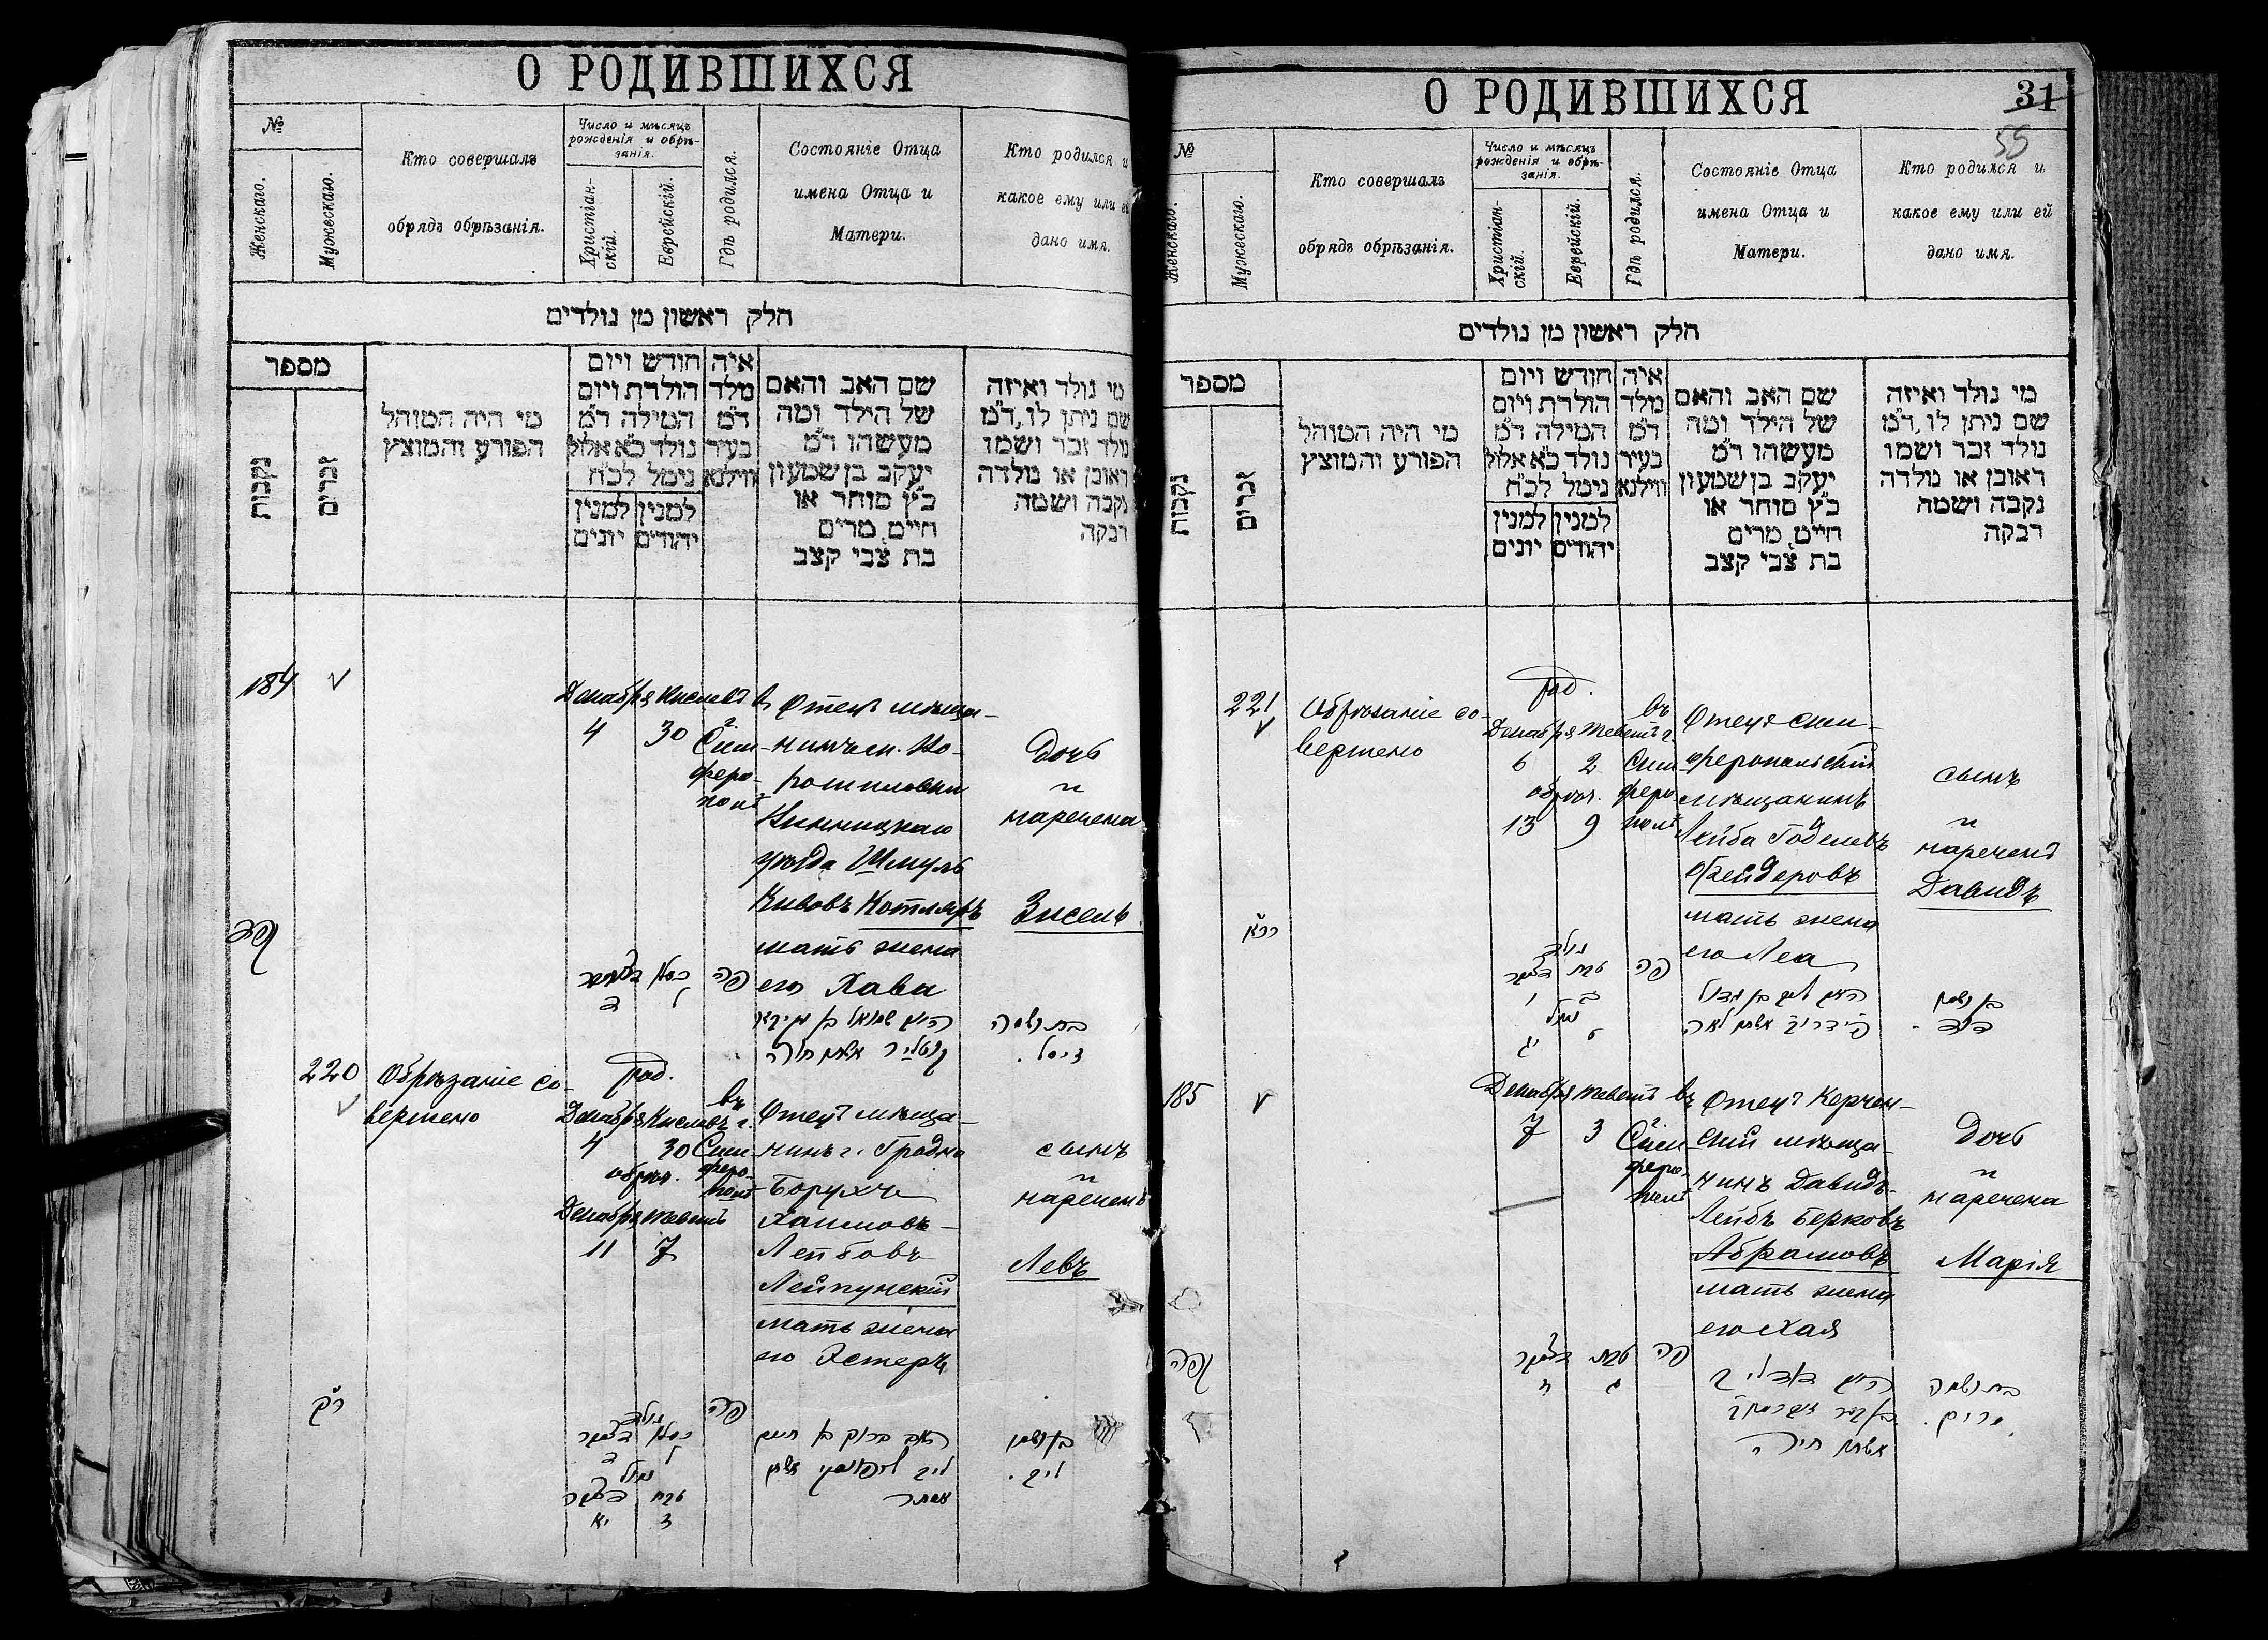 О РОДИВШИХСЯ
№
Женскаго.
Мужескаго.
Кто совершалъ
обрядъ обрѣзанія.
Число и мѣсяцъ
рожденія и обрѣ-
занія.
Христіан-
скій.
Еврейскій.
Гдѣ родился.
Состояніе Отца
имена Отца и
Матери.
Кто родился и
какое ему или ей
дано имя.
חלק ראשון מן נולדים
מספר
נקבות
זכרים
מי היה המוהל
הפורע והמוצץ
חודש ויום
הולדת ויום
המילה ד״מ
נולד כ״א אלול
נימל לכ״ח
למנין למנין
יהודים יונים
איה
מלד
ד״מ
בעיר
ווילנא
שם האב והאם
של הילד ומה
מעשהו ד״מ
יעקב בן שמעון
כ״ץ סוחר או
חיים, מרים
בת צבי קצב
מי נולד ואיזה
שם ניתן לו, ד״מ
נולד זכר ושמו
ראובן או נולדה
נקבה ושמה
רבקה
184
Декабря Кислевъ
4 30
в
г.
Сим-
феро-
полѣ
Отецъ мѣща-
нинъ м. Во-
рошиловки
Винницкаго
уѣзда Шмуль
Кивовъ Котляръ
мать жена
его Хава
Дочь
и
наречена
Зисель.
כסלו
ל
פה
בת ושמה
זיסל.
220
Обрѣзаніе со-
вершено
род.
Декабря Кислевъ
4 30
обрѣз.
Декабря Теветъ
11 7
въ
г.
Сим-
феро-
полѣ
Отецъ мѣща-
нинъ г. Гродно
Борухъ
Хаимовъ-
Лейбовъ
Лейпунскій
мать жена
его Эстеръ
сынъ
и
нареченъ
Левъ
ר״כ
נולד
כסלו דצמבר
ל ד
נימול
טבת דצמבר
ז יא
פה
האב ברוך בן חיים
ליב לייפונסקי אשתו
אסתר
בן ושמו
ליב.
О РОДИВШИХСЯ
31
55
№
Женскаго.
Мужескаго.
Кто совершалъ
обрядъ обрѣзанія.
Число и мѣсяцъ
рожденія и обрѣ-
занія.
Христіан-
скій.
Еврейскій.
Гдѣ родился.
Состояніе Отца
имена Отца и
Матери.
Кто родился и
какое ему или ей
дано имя.
חלק ראשון מן נולדים
מספר
נקבות
זכרים
מי היה המוהל
הפורע והמוצץ
חודש ויום
הולדת ויום
המילה ד״מ
נולד כ״א אלול
נימל לכ״ח
למנין למנין
יהודים יונים
איה
מלד
ד״מ
בעיר
ווילנא
שם האב והאם
של הילד ומה
מעשהו ד״מ
יעקב בן שמעון
כ״ץ סוחר או
חיים, מרים
בת צבי קצב
מי נולד ואיזה
שם ניתן לו, ד״מ
נולד זכר ושמו
ראובן או נולדה
נקבה ושמה
רבקה
221
Обрѣзаніе со-
вершено
род.
Декабря Теветъ
6 2
обрѣз.
13 9
въ
г.
Сим-
феро-
полѣ
Отецъ сим-
феропольскій
мѣщанинъ
Лейба Годелевъ
Фейдеровъ
мать жена
его Леа
сынъ
и
нареченъ
Давидъ
רכ״א
נולד
טבת דצמבר
ב ו
נימול
ט יג
פה
בן ושמו
דוד.
185
Декабря Теветъ
7 3
въ
г.
Сим-
феро-
полѣ
Отецъ Керчен-
скій мѣща-
нинъ Давидъ-
Лейбъ Берковъ
Абрамовъ
мать жена
его Хая
Дочь
и
наречена
Марія
קפה
טבת דצמבר
ג
פה
אשתו חיה
בת ושמה
מרים.